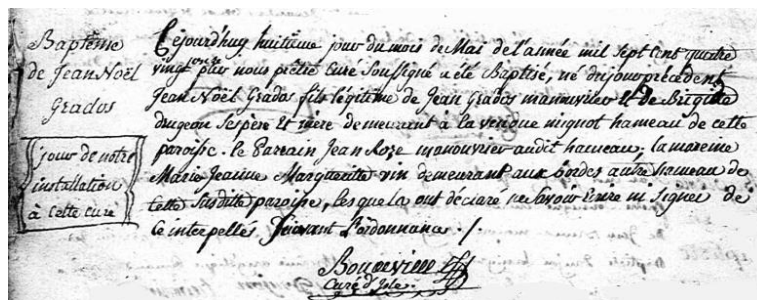 Baptême
de Jean Noël
Grados
jour de notre
installation
à cette cure
Cejourd'huy huitième jour du mois de Mai de l'année mil sept cent quatre
vingt par nous prêtre Curé Soussigné a été Baptisé, né du jour précédent
Jean Noël Grados fils légitime de Jean Grados manouvrier et De Brigitte
drugeon Ses père et mère demeurant à la vendue mignot hameau de cette
paroisse. le Parrain Jean Roze manouvrier audit hameau; la mareine
Marie Jeanne Marguerite vin demeurant aux bordes autre hameau de
cette susditte paroisse, Lesquels ont déclaré ne Savoir Ecrire ni Signer de
ce interpellés Suivant l'ordonnance ./.
Curé d'Isle